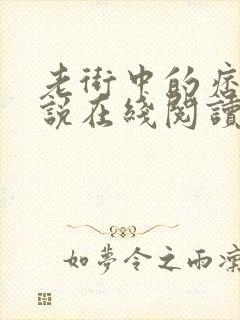 老街中的痞
說在綫閱讀
如夢令之雨凜